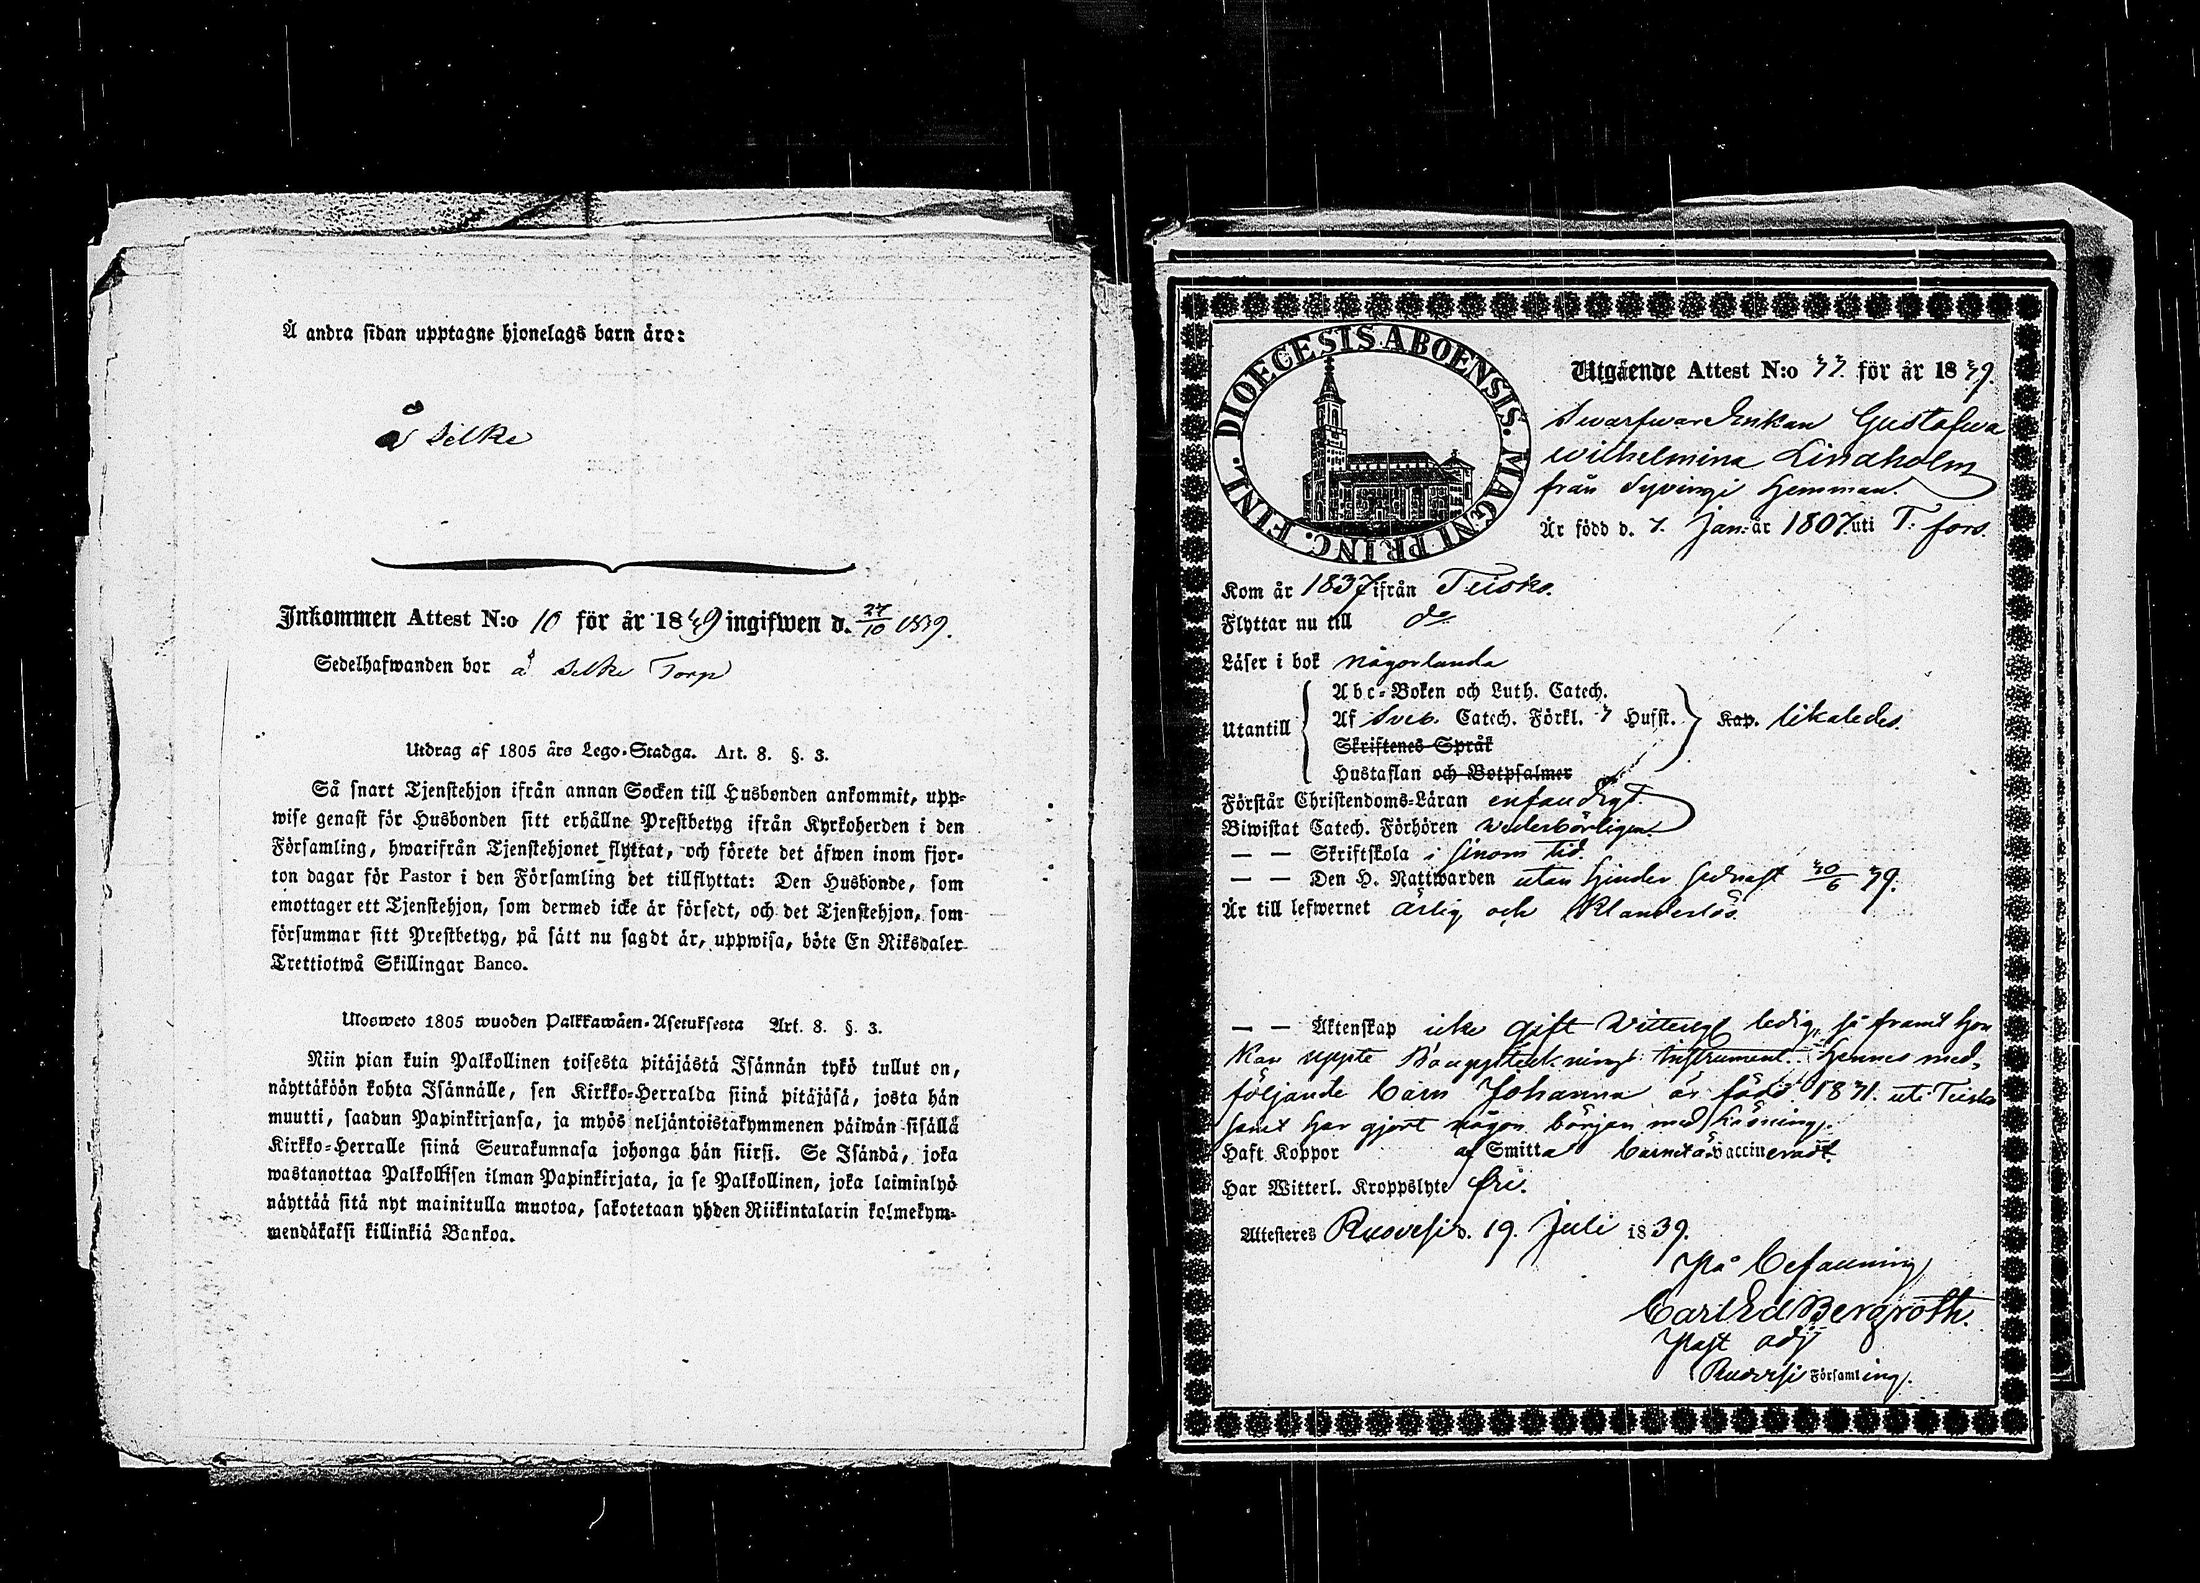 Å andra sidan upptagne hjonelags barn äro:
å Selke
Inkommen Attest N:o 10 för år 1839 ingifwen d. 27/10 1839.
Sedelhafwanden bor å Selke Torp
Utdrag af 1805 års Lego-Stadga. Art. 8. §. 3.
Så snart Tjenstehjon ifrån annan Socken till Husbonden ankommit, upp-
wise genast för Husbonden sitt erhållne Prestbetyg ifrån Kyrkoherden i den
Församling, hwarifrån Tjenstehjonet flyttat, och förete det äfwen inom fjor-
ton dagar för Pastor i den Församling det tillflyttat: Den Husbonde, som
emottager ett Tjenstehjon, som dermed icke är försedt, och det Tjenstehjon, som
försummar sitt Prestbetyg, på sätt nu sagdt är, uppwisa, böte En Riksdaler
Trettiotwå Skillingar Banco.
Ulosweto 1805 wuoden Palkkawäen-Asetuksesta Art. 8. §. 3.
Niin pian kuin Palkollinen toisesta pitäjästä Isännän tykö tullut on,
näyttäköön kohta Isännälle, sen Kirkko-Herralda siinä pitäjäsä, josta hän
muutti, saadun Papinkirjansa, ja myös neljäntoistakymmenen päiwän sisällä
Kirkko-Herralle siinä Seurakunnasa johonga hän siirsi. Se Isändä, joka
wastanottaa Palkollisen ilman Papinkirjata, ja se Palkollinen, joka laiminlyö
näyttää sitä nyt mainitulla muotoa, sakotetaan yhden Riikintalarin kolmekym-
mendäkaksi killinkiä Bankoa.
DIOECESIS ABOENSIS. MAGNI PRINC. FINL.
Utgående Attest N:o 33. för år 1839.
Swarfwar Enkan Gustafwa
Wilhelmina Lindholm
från Syvingi Hemman.
Är född d. 7. Jan: år 1807. uti T: fors.
Kom år 1837 ifrån Teisko.
Flyttar nu till do
Läser i bok någorlunda
Abc-Boken och Luth. Catech.
Utantill Af Sveb. Catech. Förkl. 3 Hufst. Kap. likaledes.
Skriftenes Språk
Hustaflan och Botpsalmer
Förstår Christendoms-Läran enfaldigt.
Biwistat Catech. Förhören wederbörligen.
— — Skriftskola i sinom tid.
— — Den H. Nattwarden utan hinder sednast 30/6 39.
Är till lefwernet ärlig och Klanderlös.
— — Äktenskap icke gift Witterligt ledig, så framt hon
kan uppte Bouppteknings Instrument. Hennes med-
följande barn Johanna är född 1831. uti Teisko
samt har gjort någon början med läsning.
Haft Koppor af Smitta barnet är vaccineradt.
Har Witterl. Kroppslyte fri.
Attesteres Ruovesi d. 19. Juli 1839.
På befallning
Carl Ed Bergroth.
Past adj
Ruovesi Församling.